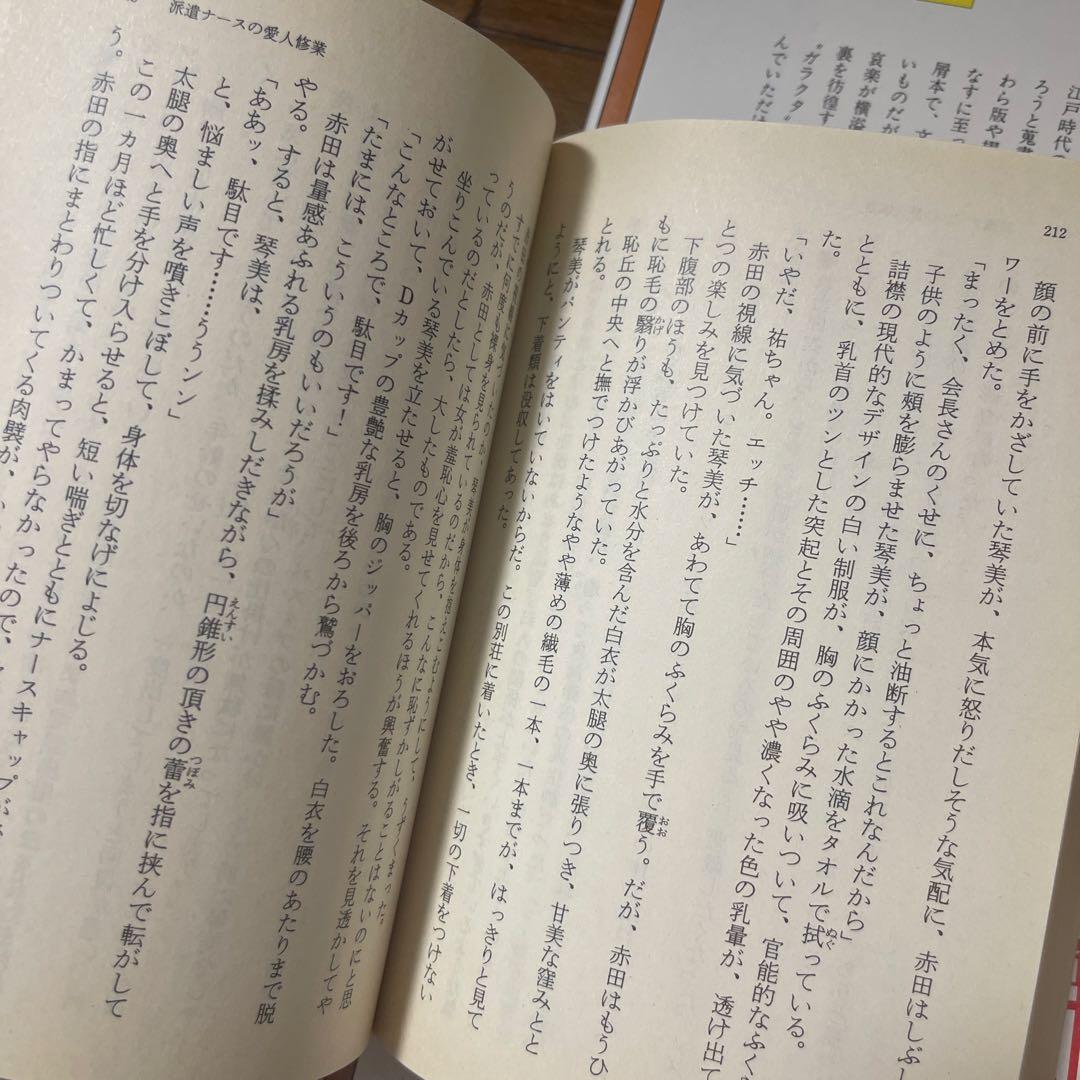 212
顔の前に手をかざしていた琴美が、本気に怒りだしそうな気配に、赤田はしぶし
ワーをとめた。
「まったく、会長さんのくせに、ちょっと油断するとこれなんだから」
子供のように頬を膨らませた琴美が、顔にかかった水滴をタオルで拭っている。
詰襟の現代的なデザインの白い制服が、胸のふくらみに吸いついて、官能的なふく
とともに、乳首のツンとした突起とその周囲のやや濃くなった色の乳暈が、透け出て
た。
「いやだ、祐ちゃん。エッチ……」
赤田の視線に気づいた琴美が、あわてて胸のふくらみを手で覆う。だが、赤田はもうひ
とつの楽しみを見つけていた。
下腹部のほうも、たっぷりと水分を含んだ白衣が太腿の奥に張りつき、甘美な窪みとと
もに恥毛の翳りが浮かびあがっていた。
恥丘の中央へと撫でつけたようなやや薄めの繊毛の一本、一本までが、はっきりと見て
とれる。
琴美がパンティをはいていないからだ。この別荘に着いたとき、一切の下着をつけない
ようにと、下着類は没収してあった。
派遣ナースの愛人修業
琴美が身体を抱えこむようにして、うずくまった。
すでに何度も裸身を見られているのだから、こんなに恥ずかしがることはないのにと思
うのだが、赤田としては女が羞恥心を見せてくれるほうが興奮する。それを見透かしてや
っているのだとしたら、大したものである。
坐りこんでいる琴美を立たせると、胸のジッパーをおろした。白衣を腰のあたりまで脱
がせておいて、Dカップの豊艶な乳房を後ろから鷲づかむ。
「こんなところで、駄目です!」
「たまには、こういうのもいいだろうが」
赤田は量感あふれる乳房を揉みしだきながら、円錐形の頂きの蕾を指に挟んで転がして
やる。すると、琴美は、
「ああッ、駄目です……ううンン」
と、悩ましい声を噴きこぼして、身体を切なげによじる。
太腿の奥へと手を分け入らせると、短い喘ぎとともにナースキャップが
この一カ月ほど忙しくて、かまってやらなかったので、
う。赤田の指にまとわりついてくる肉襞が、
江戸時代の
ろうと蒐書
わら版や
なすに至っ
屑本で、
いものだが
哀楽が横溢
裏を彷徨す
"ガラクタ"
んでいただけ